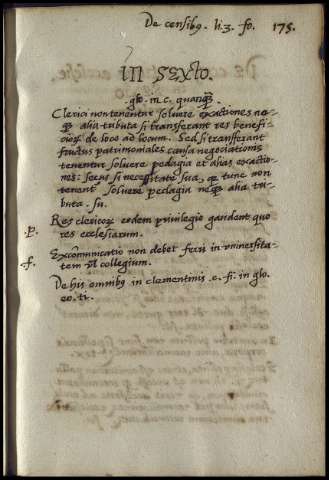 De censibꝯ. li. 3. fo. 175.
IN SEXTO.
glo. m. c. quanqꝫ.
Clerici non tenentur soluere exactiones ne-
qꝫ alia tributa si transferant res benefi-
cioꝝ de loco ad locum. Sed si transferant
fructus patrimoniales causa negociationis
tenentur soluere pedagia et alias exactio-
nes: secus si necessitate sua, qꝛ tunc non
tenent soluere pedagia neqꝫ alia tri-
buta. su.
.p. Res clericoꝝ eodem priuilegio gaudent quo
res ecclesiarum.
.f. Excõmunicatio non debet ferri in vniuersita-
tem vl collegium.
De his omnibꝯ in clementinis .c. fi. in glo.
eo. ti.